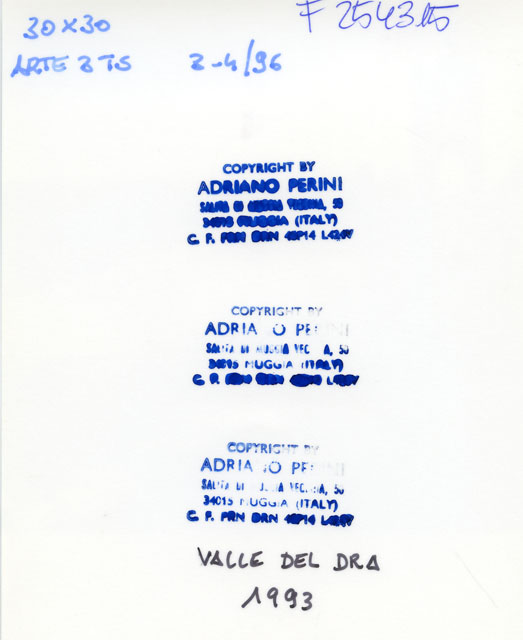 30x30
F 254315
ARTE 3 TS 2-4/96
COPYRIGHT BY
ADRIANO PERINI
SALITA DI MUGGIA VECCHIA, 50
34015 MUGGIA (ITALY)
C. F. PRN DRN
COPYRIGHT BY
ADRIA O PE
SALITA DI MUGGIA VEC A, 50
34015 MUGGIA (ITALY)
C. F.
COPYRIGHT BY
ADRIA IO PE
SALITA DI A, 50
34015 MUGGIA (ITALY)
C. F. PRN DRN
VALLE DEL DRA
1993